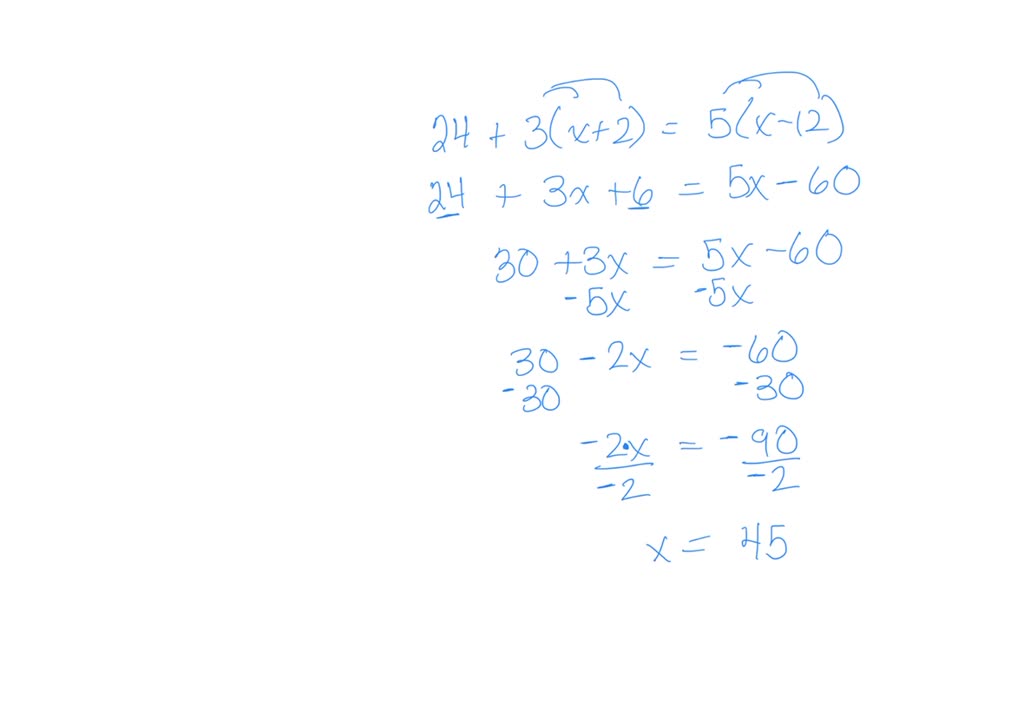 24 + 3(x+2) = 5(x-12)
24 + 3x +6 = 5x - 60
30 +3x = 5x -60
-5x -5x
30 - 2x = -60
-30 -30
-2•x = -90
-2 -2
x = 45